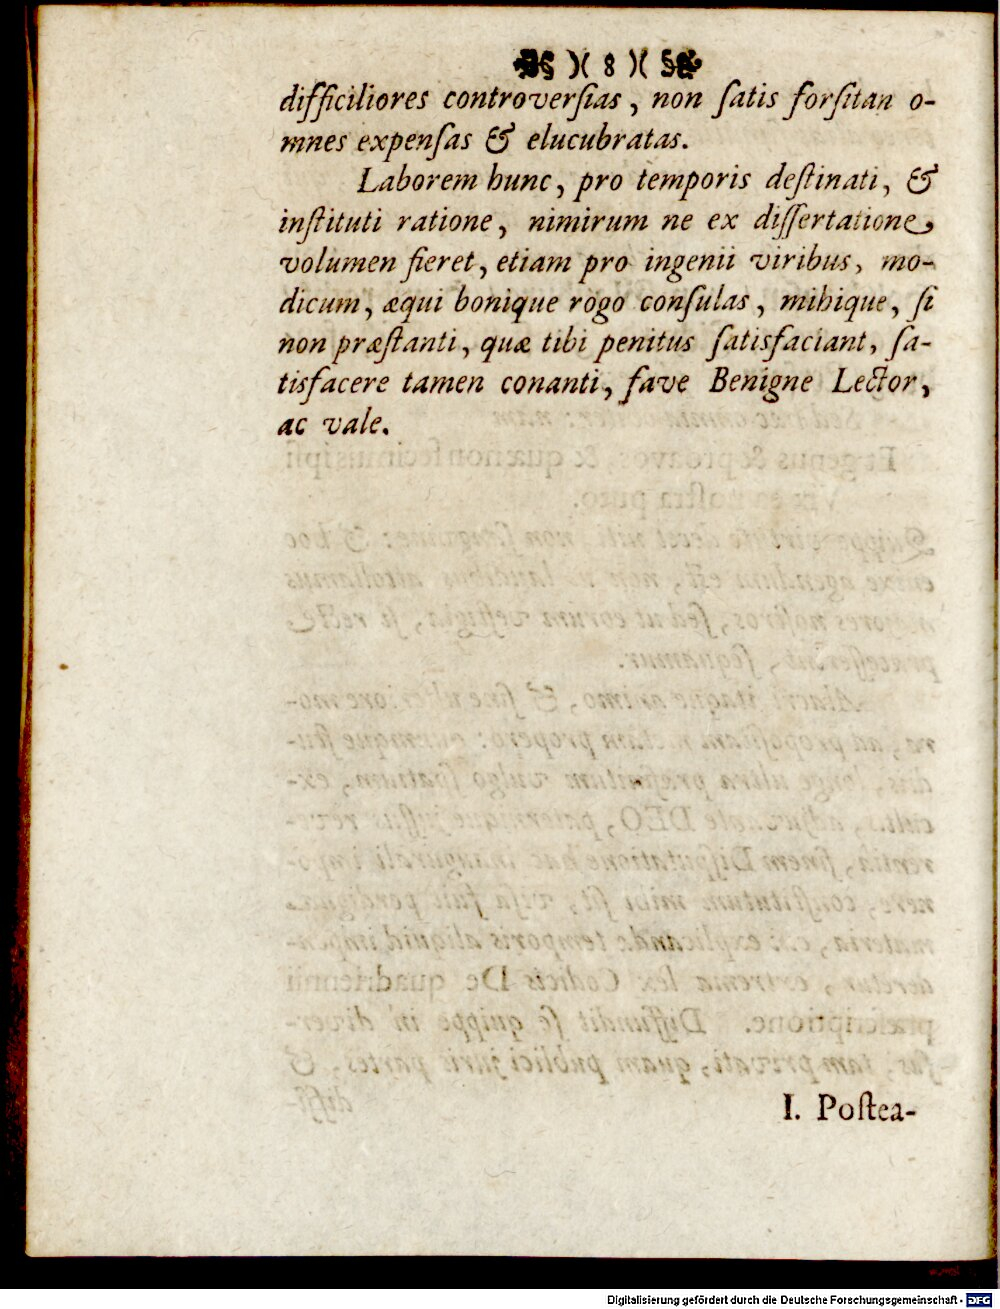 )( 8 )(
difficiliores controverſias, non ſatis forſitan o-
mnes expenſas & elucubratas.
Laborem hunc, pro temporis deſtinati, &
inſtituti ratione, nimirum ne ex diſſertatione
volumen fieret, etiam pro ingenii viribus, mo-
dicum, æqui bonique rogo conſulas, mihique, ſi
non præſtanti, quæ tibi penitus ſatisfaciant, ſa-
tisfacere tamen conanti, fave Benigne Lector,
ac vale.
I. Poſtea-
Digitalisierung gefördert durch die Deutsche Forschungsgemeinschaft - DFG